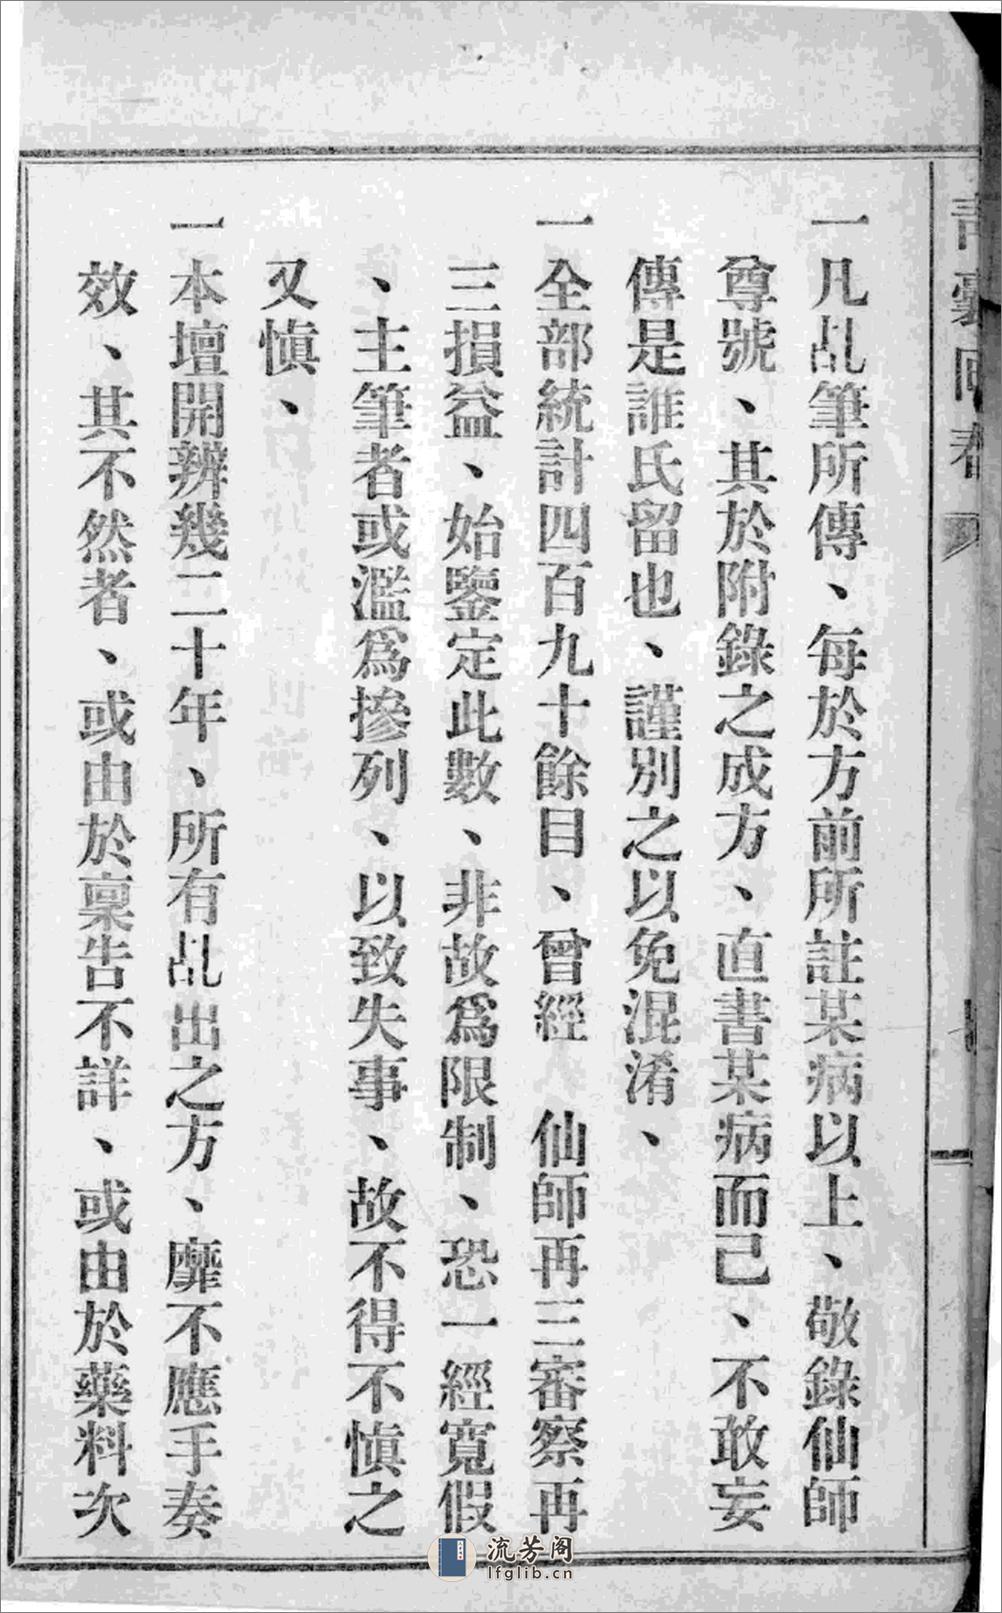 一凡乩筆所傳、每於方前所註某病以上、敬錄仙師
尊號、其於附錄之成方、直書某病而己、不敢妄
傳是誰氏留也、謹別之以免混淆、
一全部統計四百九十餘目、曾經　仙師再三審察再
三損益、始鑒定此數、非故爲限制、恐一經寬假
、主筆者或濫爲摻列、以致失事、故不得不慎之
又慎、
一本壇開辦幾二十年、所有乩出之方、靡不應手奏
效、其不然者、或由於稟告不詳、或由於藥料次
流芳阁
lfglib.cn